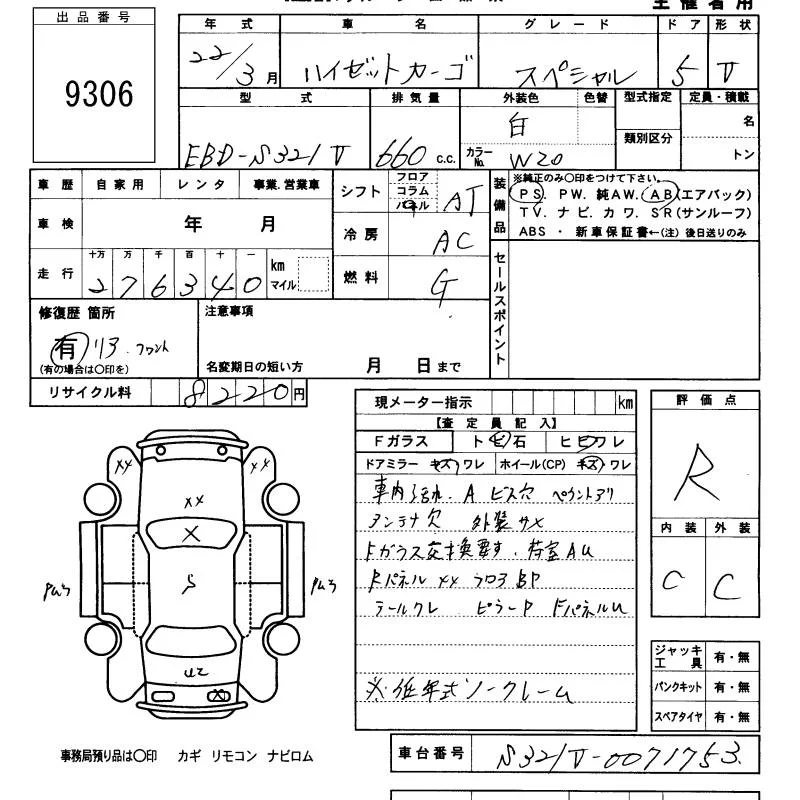 主催者用
出品番号
9306
年式 車名 グレード ドア 形状
22/3月 ハイゼットカーゴ スペシャル 5 V
型式 排気量 外装色 色替 型式指定 定員・積載
EBD-S321V 660 c.c. 白 名
カラーNo. W20 類別区分 トン
車歴 自家用 レンタ 事業.営業車
シフト フロア コラム パネル AT
車検 年 月
冷房 AC
走行 十万 万 千 百 十 一
276340 km マイル
燃料 G
装備品
※純正のみ○印をつけて下さい。
PS. PW. 純AW. AB(エアバック)
TV. ナビ. カワ. SR(サンルーフ)
ABS ・ 新車保証書←(注) 後日送りのみ
セールスポイント
修復歴 箇所
有 リア.フロント
(有の場合は○印を)
注意事項
名変期日の短い方 月 日まで
リサイクル料 8220円
現メーター指示 km
【査定員記入】
Fガラス トビ石 ヒビワレ
ドアミラー キズ ワレ ホイール(CP) キズ ワレ
車内汚れ. A ビス穴 ペイントアリ
アンテナ欠 外装サメ
Fガラス交換要す. 荷室AU
Rパネルxx フロアBP
テールワレ ピラーP FパネルU
※.低年式ノークレーム
評価点
R
内装 外装
C C
xx xx
xx
X
S
PW3 PW3
U2
X
ジャッキ工具 有・無
パンクキット 有・無
スペアタイヤ 有・無
事務局預り品は○印 カギ リモコン ナビロム
車台番号 S321V-0071753